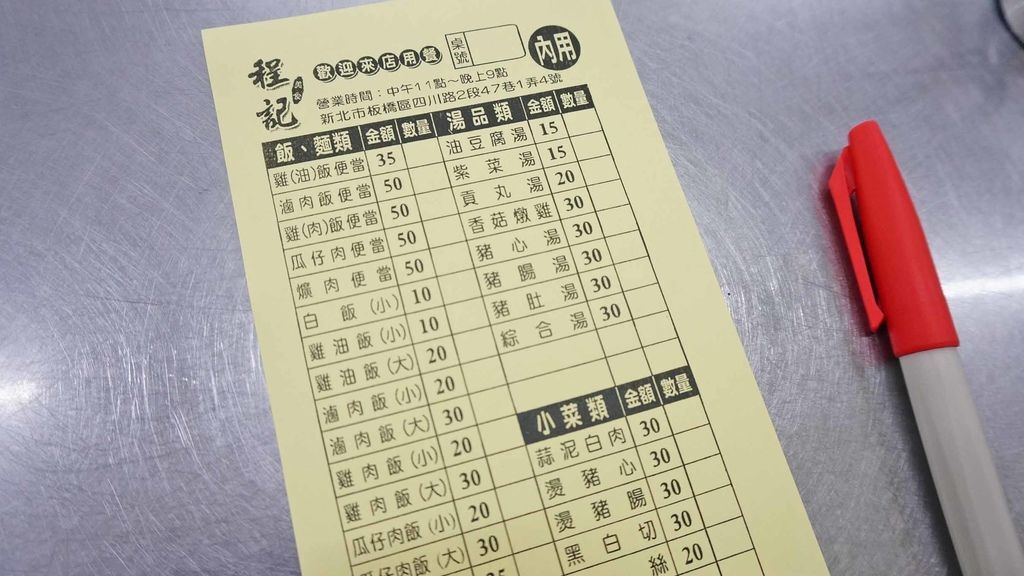 程記
歡迎來店用餐
桌號
內用
營業時間：中午11點～晚上9點
新北市板橋區四川路2段47巷1弄4號
飯、麵類 金額 數量
雞(油)飯便當 35
滷肉飯便當 50
雞(肉)飯便當 50
瓜仔肉便當 50
爌肉便當 50
白飯(小) 10
雞油飯(小) 10
雞油飯(大) 20
滷肉飯(小) 20
滷肉飯(大) 30
雞肉飯(小) 20
雞肉飯(大) 30
瓜仔肉飯(小) 20
瓜仔肉飯(大) 30
湯品類 金額 數量
油豆腐湯 15
紫菜湯 15
貢丸湯 20
香菇燉雞 30
豬心湯 30
豬腸湯 30
豬肚湯 30
綜合湯 30
小菜類 金額 數量
蒜泥白肉 30
燙豬心 30
燙豬腸 30
黑白切 30
絲 20